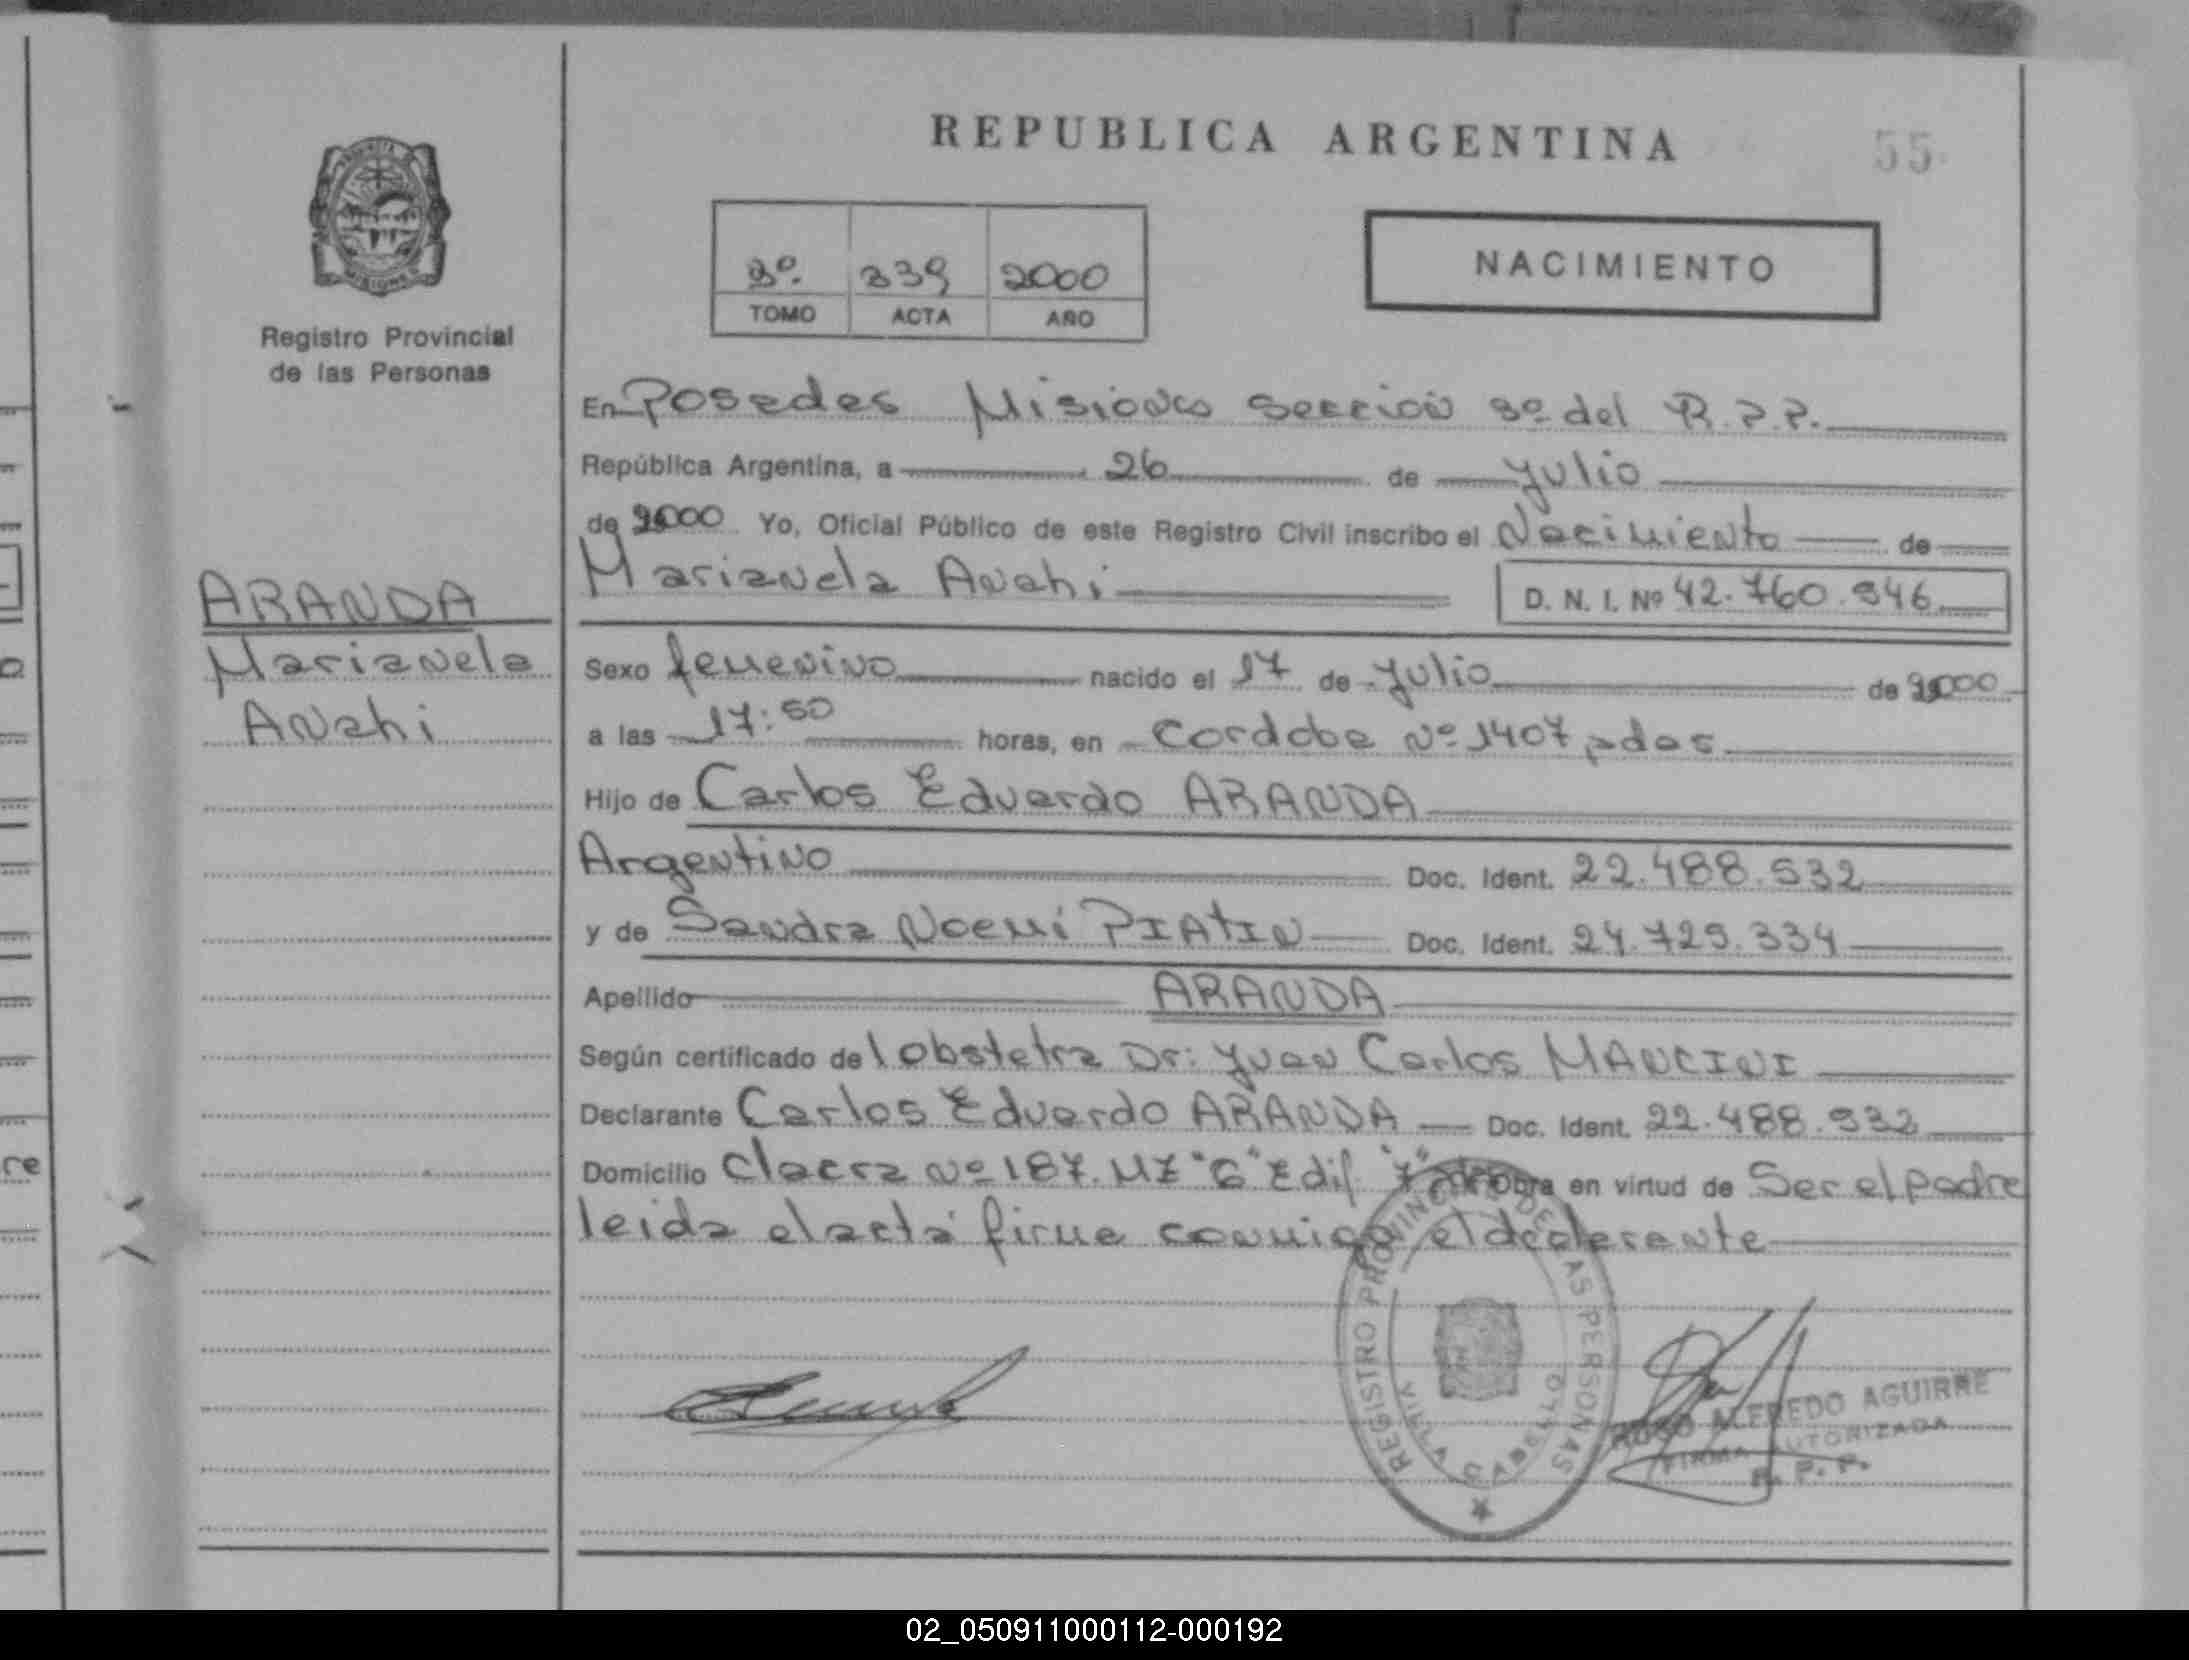 REPUBLICA ARGENTINA
55
Registro Provincial
de las Personas
3º 339 2000
TOMO ACTA AÑO
NACIMIENTO
En Posadas Misiones Sección 3º del R.P.P.
República Argentina, a 26 de Julio
de 2000 Yo, Oficial Público de este Registro Civil inscribo el Nacimiento de
Marianela Anahi D. N. I. Nº 42.760.946
ARANDA
Marianela
Anahi
Sexo femenino nacido el 17 de Julio de 2000
a las 17:50 horas, en Cordoba Nº 1407 pdas
Hijo de Carlos Eduardo ARANDA
Argentino Doc. Ident. 22.488.532
y de Sandra Noemi PIATIN Doc. Ident. 24.729.334
Apellido ARANDA
Según certificado de l obstetra Dr: Juan Carlos MANCINI
Declarante Carlos Eduardo ARANDA Doc. Ident. 22.488.532
Domicilio Chacra Nº 187. MZ "G" Edif. "7" Obra en virtud de Ser el padre
leida el acta firma conmigo el declarante
REGISTRO PROVINCIAL DE LAS PERSONAS
ALFREDO AGUIRRE
FIRMA AUTORIZADA
R. P. P.
02_050911000112-000192